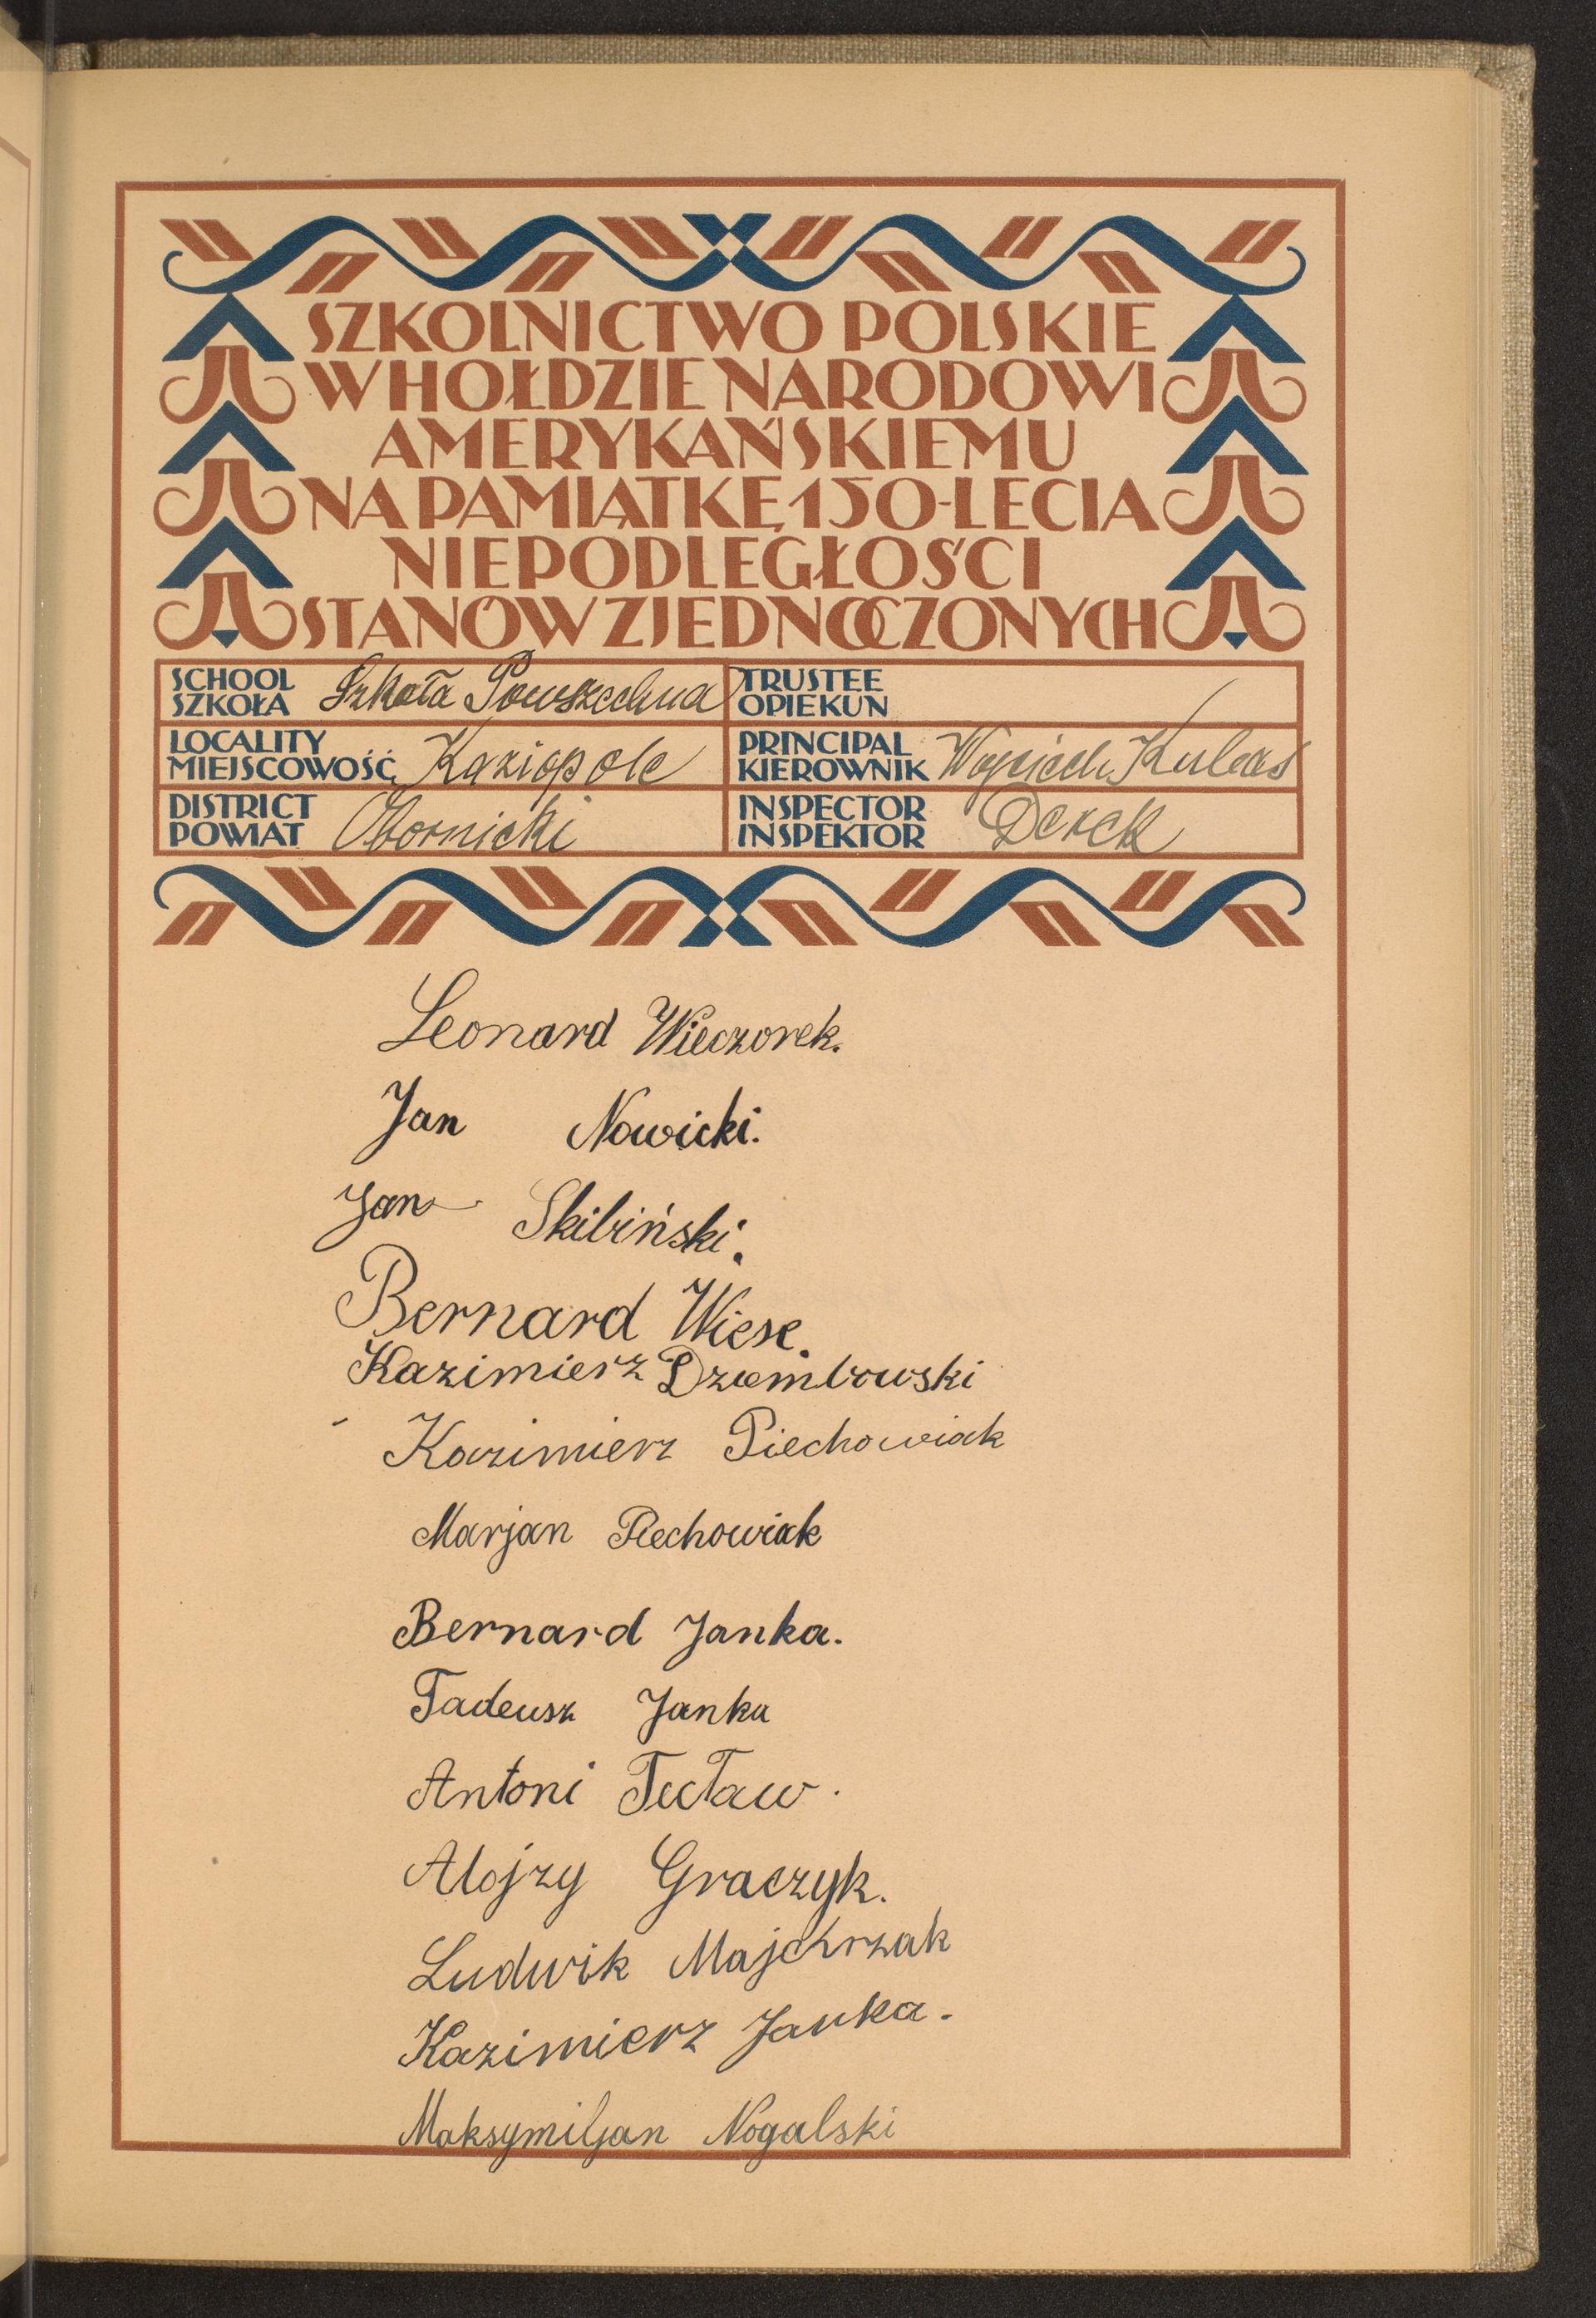 SZKOLNICTWO POLSKIE
W HOŁDZIE NARODOWI
AMERYKAŃSKIEMU
NA PAMIĄTKĘ 150-LECIA
NIEPODLEGŁOŚCI
STANÓW ZJEDNOCZONYCH
SCHOOL
SZKOŁA Szkoła Powszechna
TRUSTEE
OPIEKUN
LOCALITY
MIEJSCOWOŚĆ Kaziopole
PRINCIPAL
KIEROWNIK Wojciech Kulcas
DISTRICT
POWIAT Obornicki
INSPECTOR
INSPEKTOR Derck
Leonard Wieczorek.
Jan Nowicki.
Jan Skibiński.
Bernard Wiese.
Kazimierz Dziembowski
Kazimierz Piechowiak
Marjan Piechowiak
Bernard Janka.
Tadeusz Janka
Antoni Tecław.
Alojzy Graczyk.
Ludwik Majchrzak
Kazimierz Janka.
Maksymiljan Nogalski